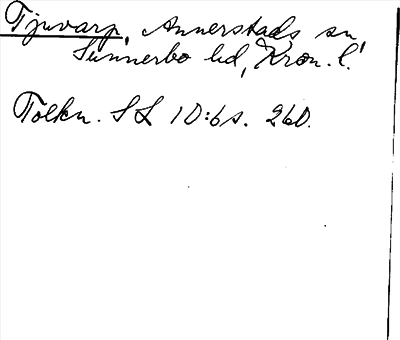 Tjuvarp, Annerstads sn,
Sunnerbo hd, Kron. l.
Tolkn. SL 10:6 s. 260.